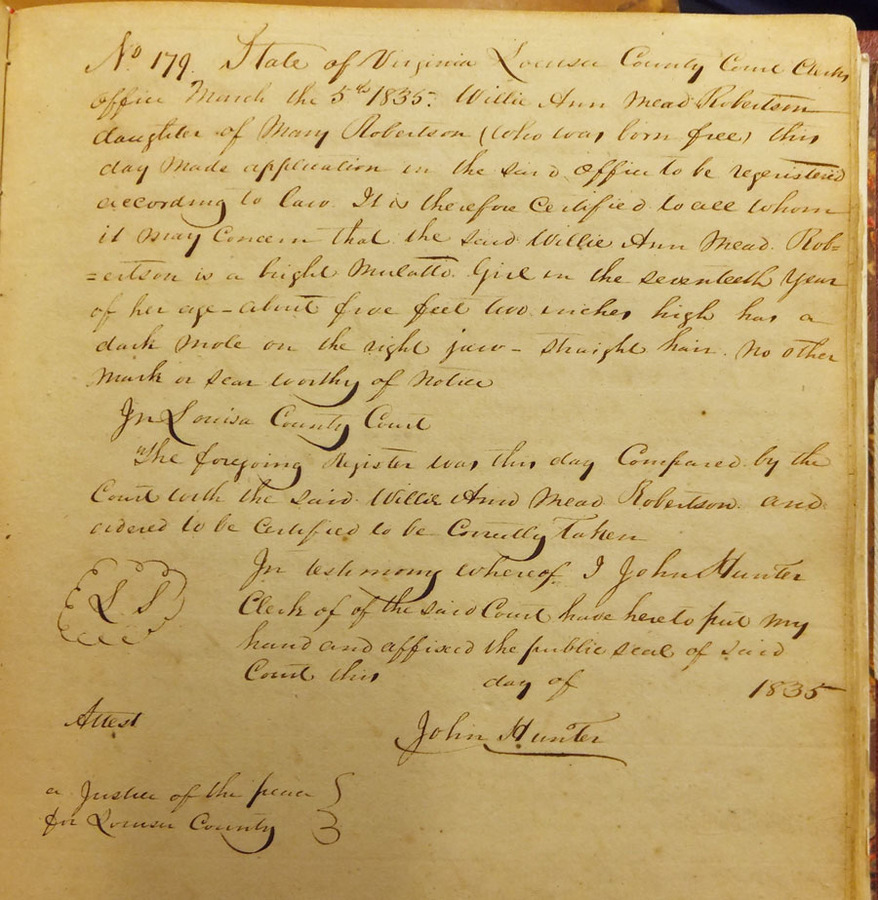 No 179. State of Virginia Louisa County Court Clerks
office March the 5th 1835. Willie Ann Mead Robertson
daughter of Mary Robertson (who was born free) this
day made application in the said office to be regenistered
according to law. It is therefore Certified to all whom
it may Concern that the said Willie Ann Mead. Rob=
=ertson is a bright Mulatto. Girl in the seventeeth Year
of her age - about five feet two inches high has a
dark mole on the right jaw - straight hair. No other
Mark or scar worthy of Notice
In Louisa County Court
The foregoing Register was this day Compared by the
Court with the said. Willie Ann Mead Robertson. and
ordered to be Certified to be Correctly Taken
In testimony whereof. I John Hunter
L S
Clerk of of the said Court have hereto put my
hand and affixed the public seal of said
Court this day of 1835
Attest
John Hunter
a Justice of the peace
for Louisa County